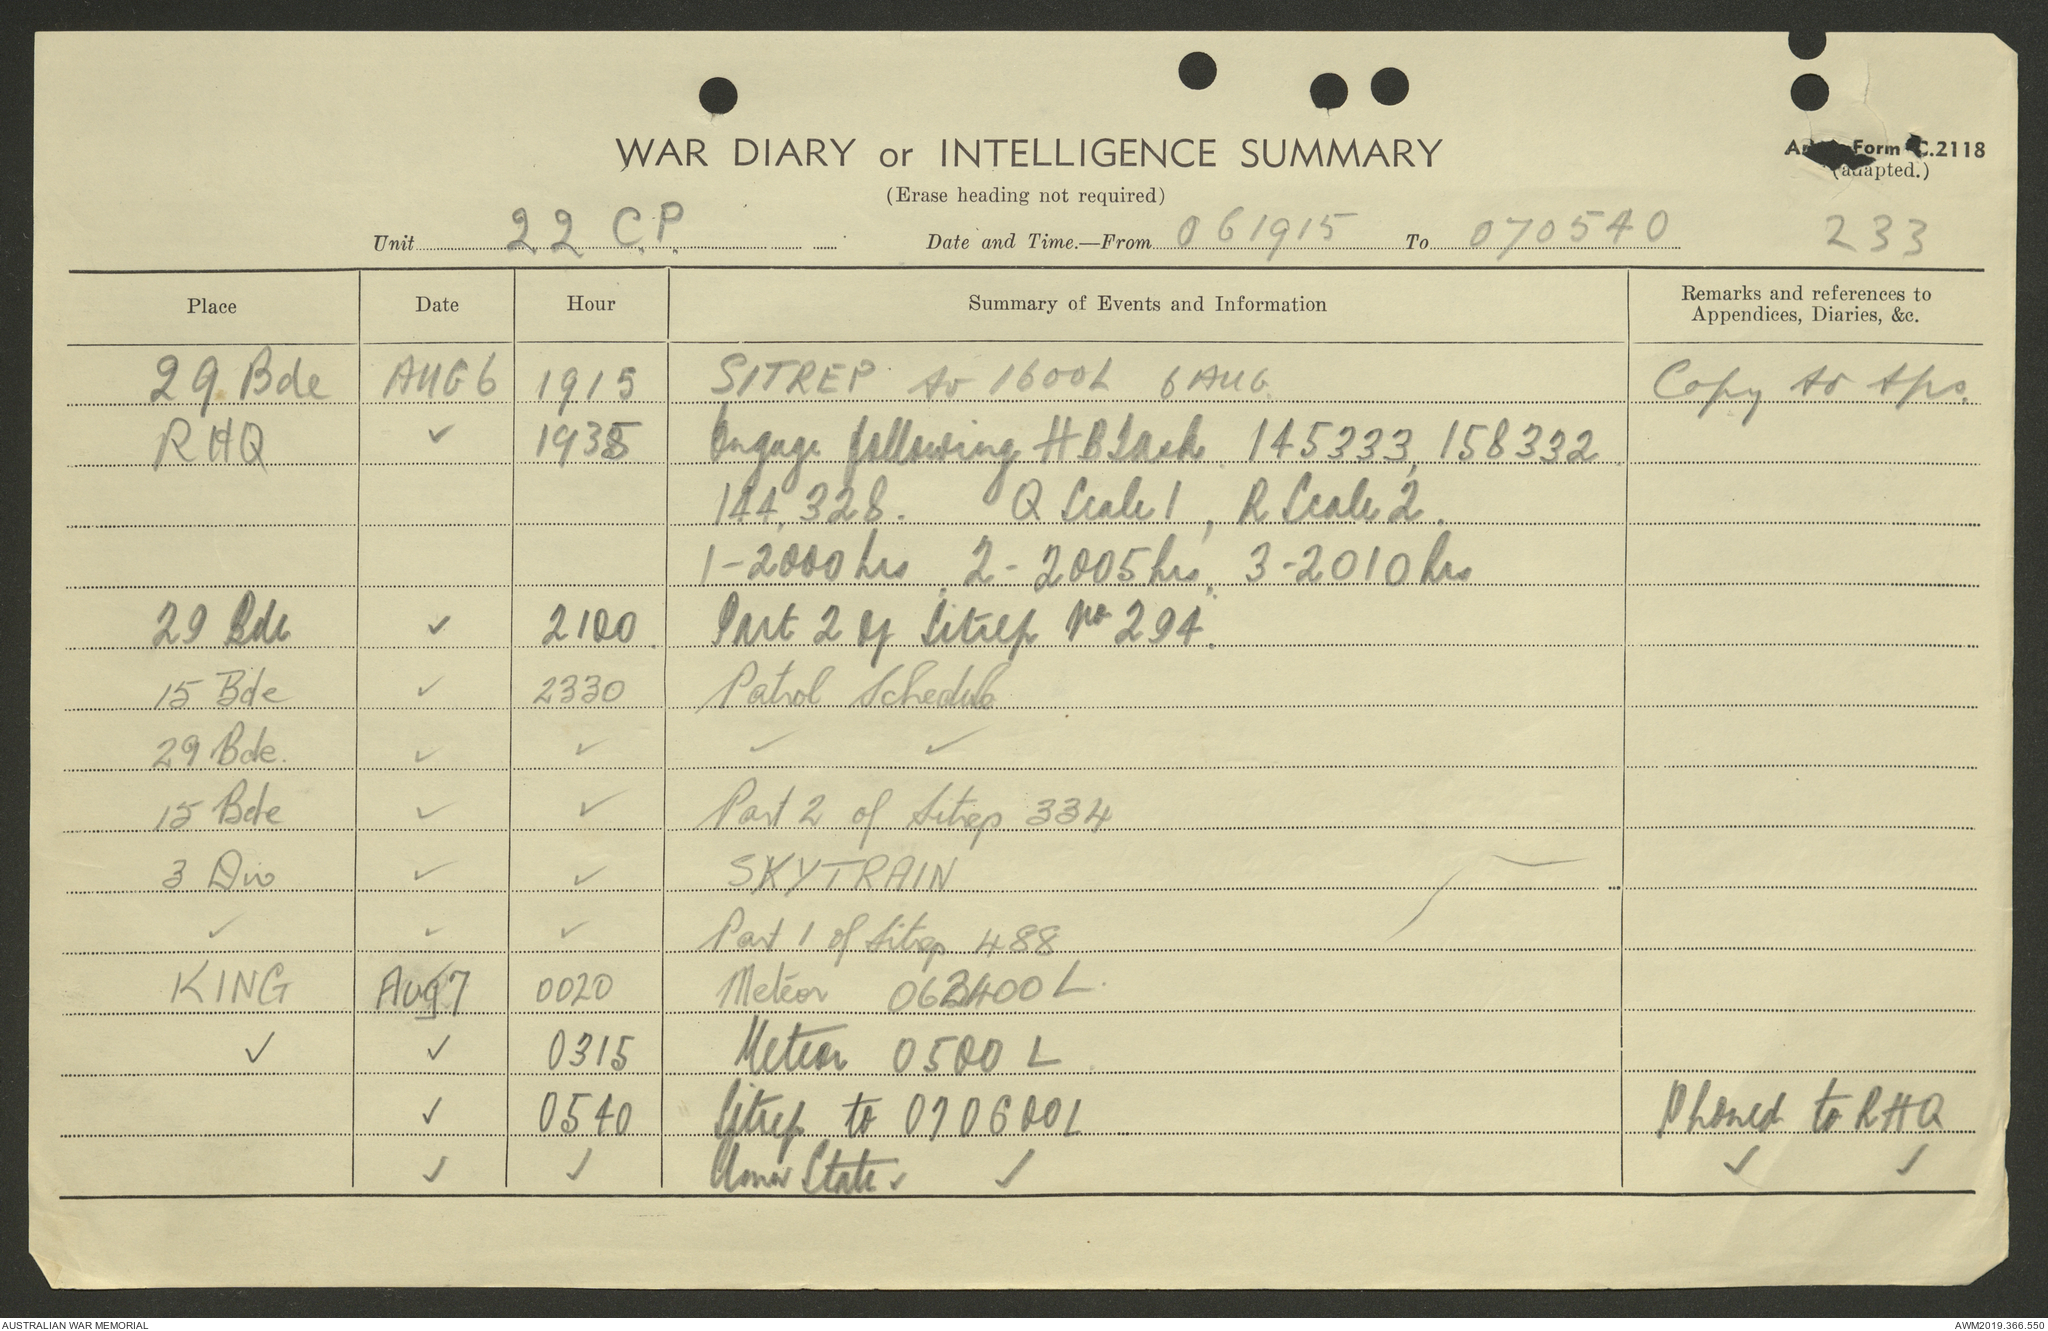 WAR DIARY or INTELLIGENCE SUMMARY
Form C.2118
(Erase heading not required)
(adapted.)
Unit 22 C.P. Date and Time.—From 061915 To 070540 233
Place Date Hour Summary of Events and Information Remarks and references to
Appendices, Diaries, &c.
29 Bde AUG 6 1915 SITREP to 1600L 6 AUG. Copy to tps.
RHQ ✓ 1935 Engage following HB 145333, 158332
144,328. Q Scale 1, R Scale 2.
1-2000 hrs, 2-2005 hrs, 3-2010 hrs
29 Bde ✓ 2100 Part 2 of Sitrep No 294.
15 Bde ✓ 2330 Patrol Schedule
29 Bde. ✓ ✓ ✓ ✓
15 Bde ✓ ✓ Part 2 of Sitrep 334
3 Div ✓ ✓ SKYTRAIN
✓ ✓ ✓ Part 1 of Sitrep 488
KING Aug 7 0020 Meteor 062400L.
✓ ✓ 0315 Meteor 0500 L
✓ 0540 Sitrep to 070600L Phoned to RHQ
✓ ✓ State ✓ ✓ ✓ ✓
AUSTRALIAN WAR MEMORIAL AWM2019.366.550